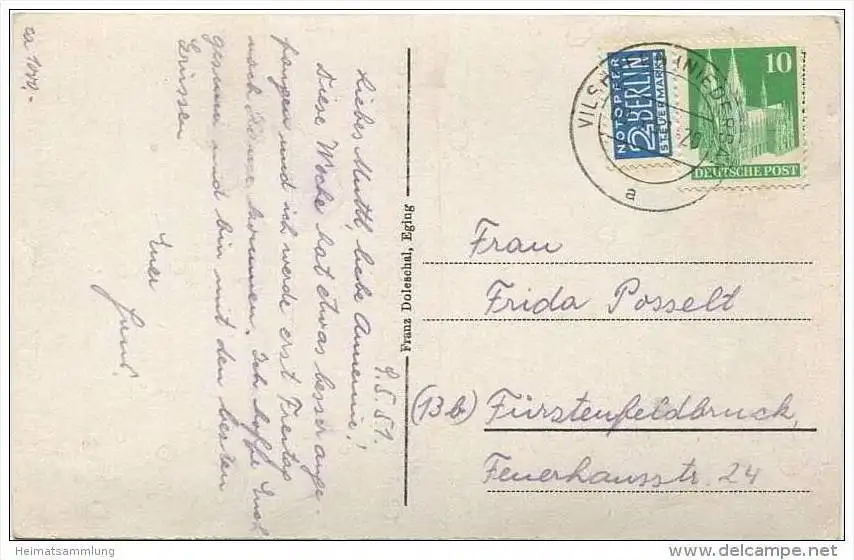 ca 1000,-
9.5.51.
Lieber Muttl, liebe Annemie!
Diese Woche hat etwas besser ange-
fangen und ich werde erst Freitag
nach Hause kommen. Ich hoffe Euch
gesund und bin mit den besten
Grüssen
Euer
Franz Doleschal, Eging
NOTOPFER
2 BERLIN
STEUERMARKE
10
DEUTSCHE POST
VILSH
NIEDERBA
a
Frau
Frida Posselt
(13b) Fürstenfeldbruck,
Feuerhausstr. 24
Heimatsammlung
www.delcampe.net